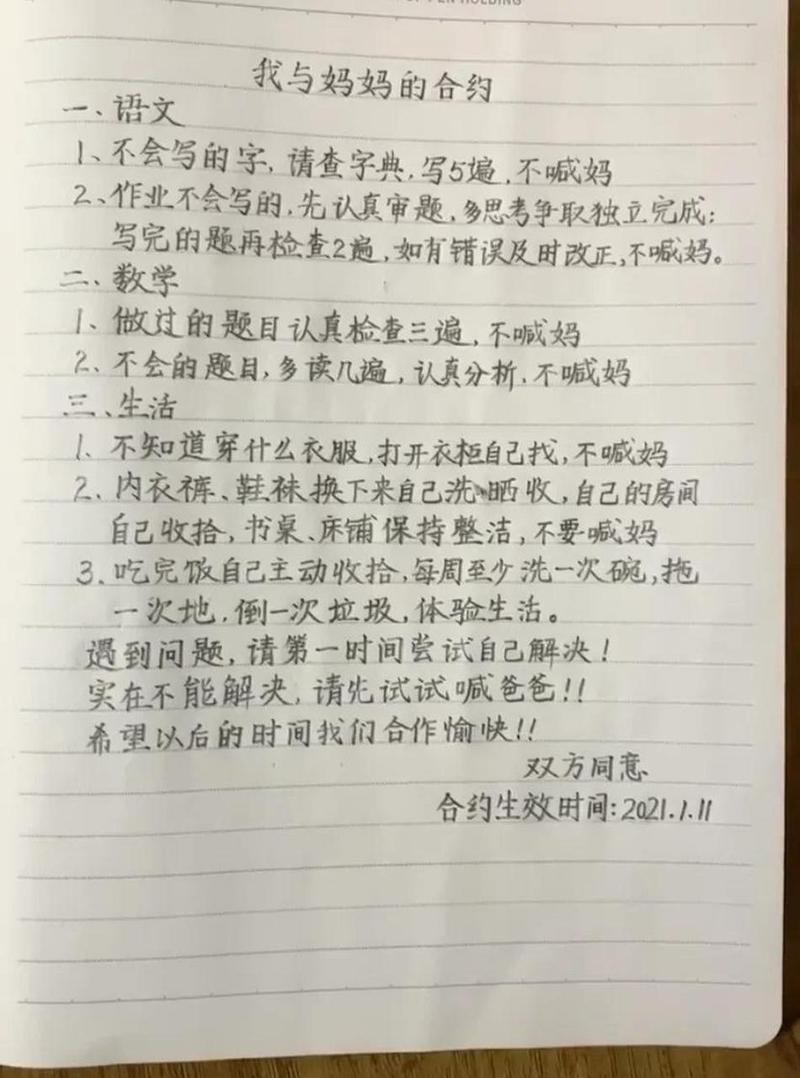 我与妈妈的合约
一、语文
1、不会写的字，请查字典，写5遍，不喊妈
2、作业不会写的，先认真审题，多思考争取独立完成；
写完的题再检查2遍，如有错误及时改正，不喊妈。
二、数学
1、做过的题目认真检查三遍，不喊妈
2、不会的题目，多读几遍，认真分析，不喊妈
三、生活
1、不知道穿什么衣服，打开衣柜自己找，不喊妈
2、内衣裤、鞋袜换下来自己洗、晒收，自己的房间
自己收拾，书桌、床铺保持整洁，不要喊妈
3、吃完饭自己主动收拾，每周至少洗一次碗，拖
一次地，倒一次垃圾，体验生活。
遇到问题，请第一时间尝试自己解决！
实在不能解决，请先试试喊爸爸！！
希望以后的时间我们合作愉快！！
双方同意
合约生效时间：2021.1.11